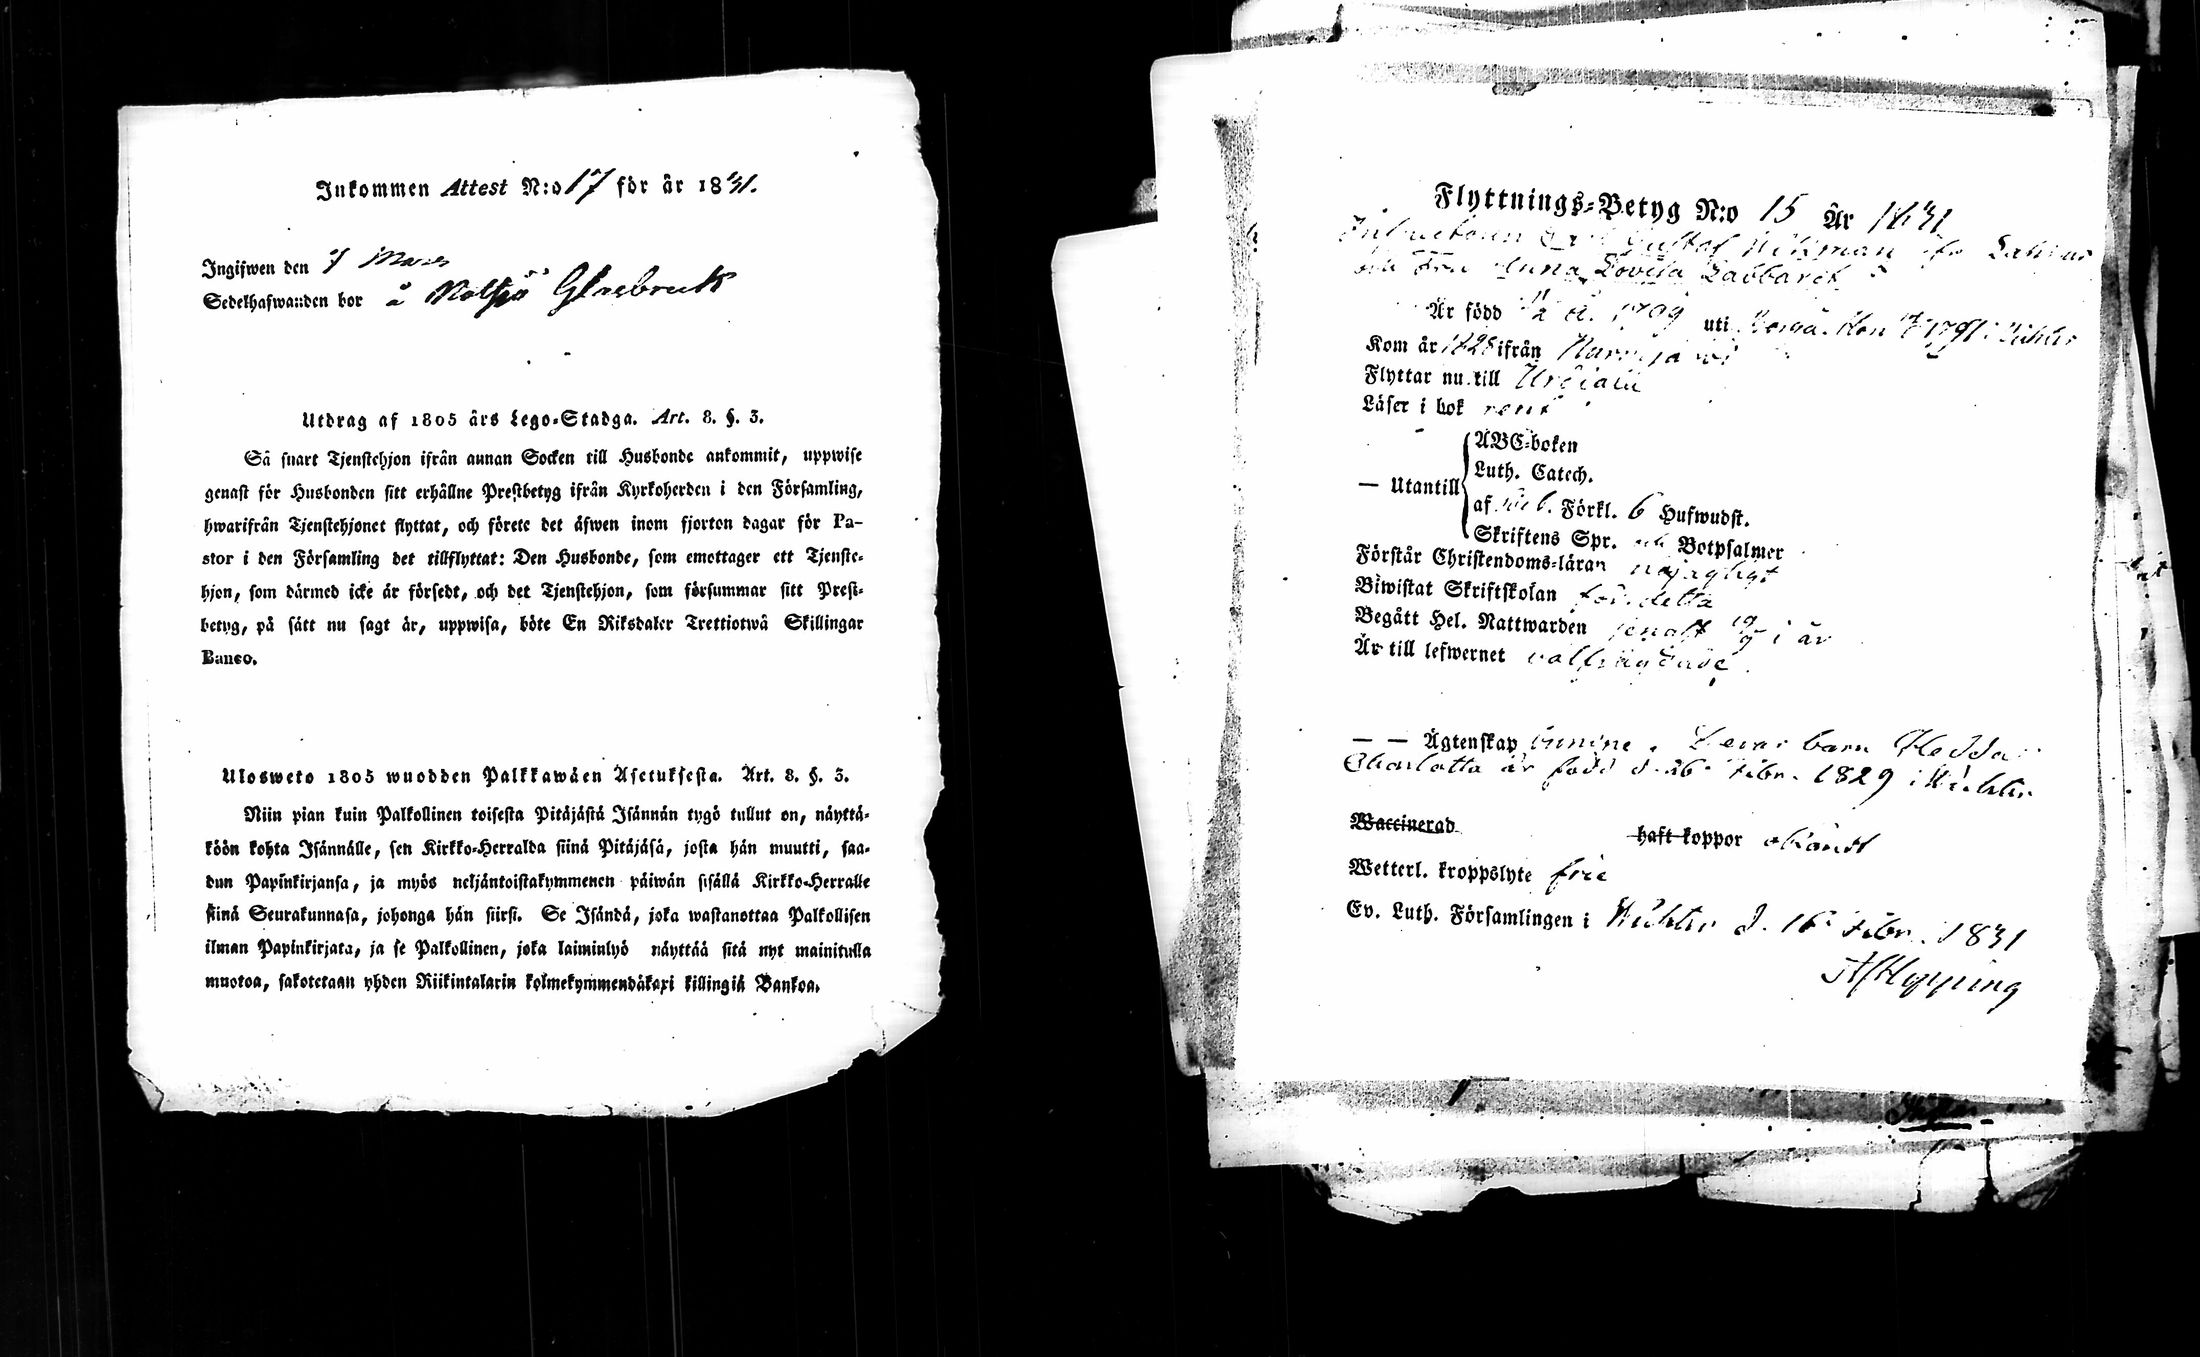 Inkommen Attest N:o 17 för år 1831.
Ingifwen den 7 Mars
Sedelhafwanden bor å Notsjö Glasbruk
Utdrag af 1805 års Lego-Stadga. Art. 8. §. 3.
Så snart Tjenstehjon ifrån annan Socken till Husbonde ankommit, uppwise
genast för Husbonden sitt erhållne Prestbetyg ifrån Kyrkoherden i den Församling,
hwarifrån Tjenstehjonet flyttat, och förete det äfwen inom fjorton dagar för Pa-
stor i den Församling det tillflyttat: Den Husbonde, som emottager ett Tjenste-
hjon, som därmed icke är försedt, och det Tjenstehjon, som försummar sitt Prest-
betyg, på sätt nu sagt är, uppwisa, böte En Riksdaler Trettiotwå Skillingar
Banco.
Ulosweto 1805 wuodden Palkkawäen Asetuksesta. Art. 8. §. 3.
Niin pian kuin Palkollinen toisesta Pitäjästä Isännän tygö tullut on, näyttä-
köön kohta Isännälle, sen Kirkko-Herralda siinä Pitäjäsä, josta hän muutti, saa-
dun Papinkirjansa, ja myös neljäntoistakymmenen päiwän sisällä Kirkko-Herralle
siinä Seurakunnasa, johonga hän siirsi. Se Isändä, joka wastanottaa Palkollisen
ilman Papinkirjata, ja se Palkollinen, joka laiminlyö näyttää sitä nyt mainitulla
muotoa, sakotetaan yhden Riikintalarin kolmekymmendäkaxi killingiä Bankoa.
Flyttnings-Betyg N:o 15 År 1831
Gustaf
Fru Anna Lovisa
Är född 1799 uti Borgå. Hon 1791
Kom år 1828 ifrån Nurmijärvi
Flyttar nu till Urdiala
Läser i bok rent
— Utantill
ABC-boken
Luth. Catech.
af Förkl. 6 Hufwudst.
Skriftens Spr. och Botpsalmer
Förstår Christendoms-läran nöjagligt
Biwistat Skriftskolan för detta
Begått Hel. Nattwarden senast i år
Är till lefwernet välfrägdade
— — Ägtenskap Deras barn Hedda
Charlotta är född d. 26 Febr. 1829 i Wichtis
Waccinerad haft koppor
Wetterl. kroppslyte frie
Ev. Luth. Församlingen i Wichtis d. 16 Febr. 1831
Hipping